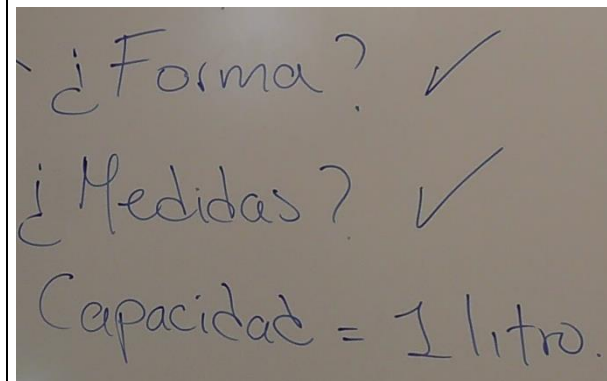 ¿Forma? ✓
¿Medidas? ✓
Capacidad = 1 litro.